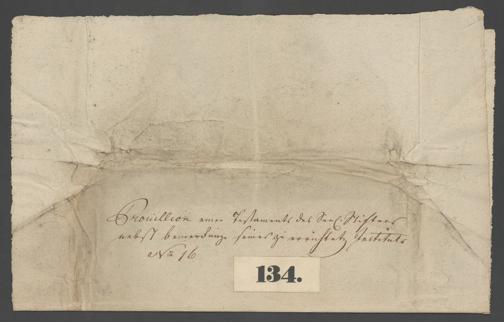 Brouilleon eines Testaments des Seel. Stifters
nebst bemerkung seines zu errichtet Instituts
No 16
134.